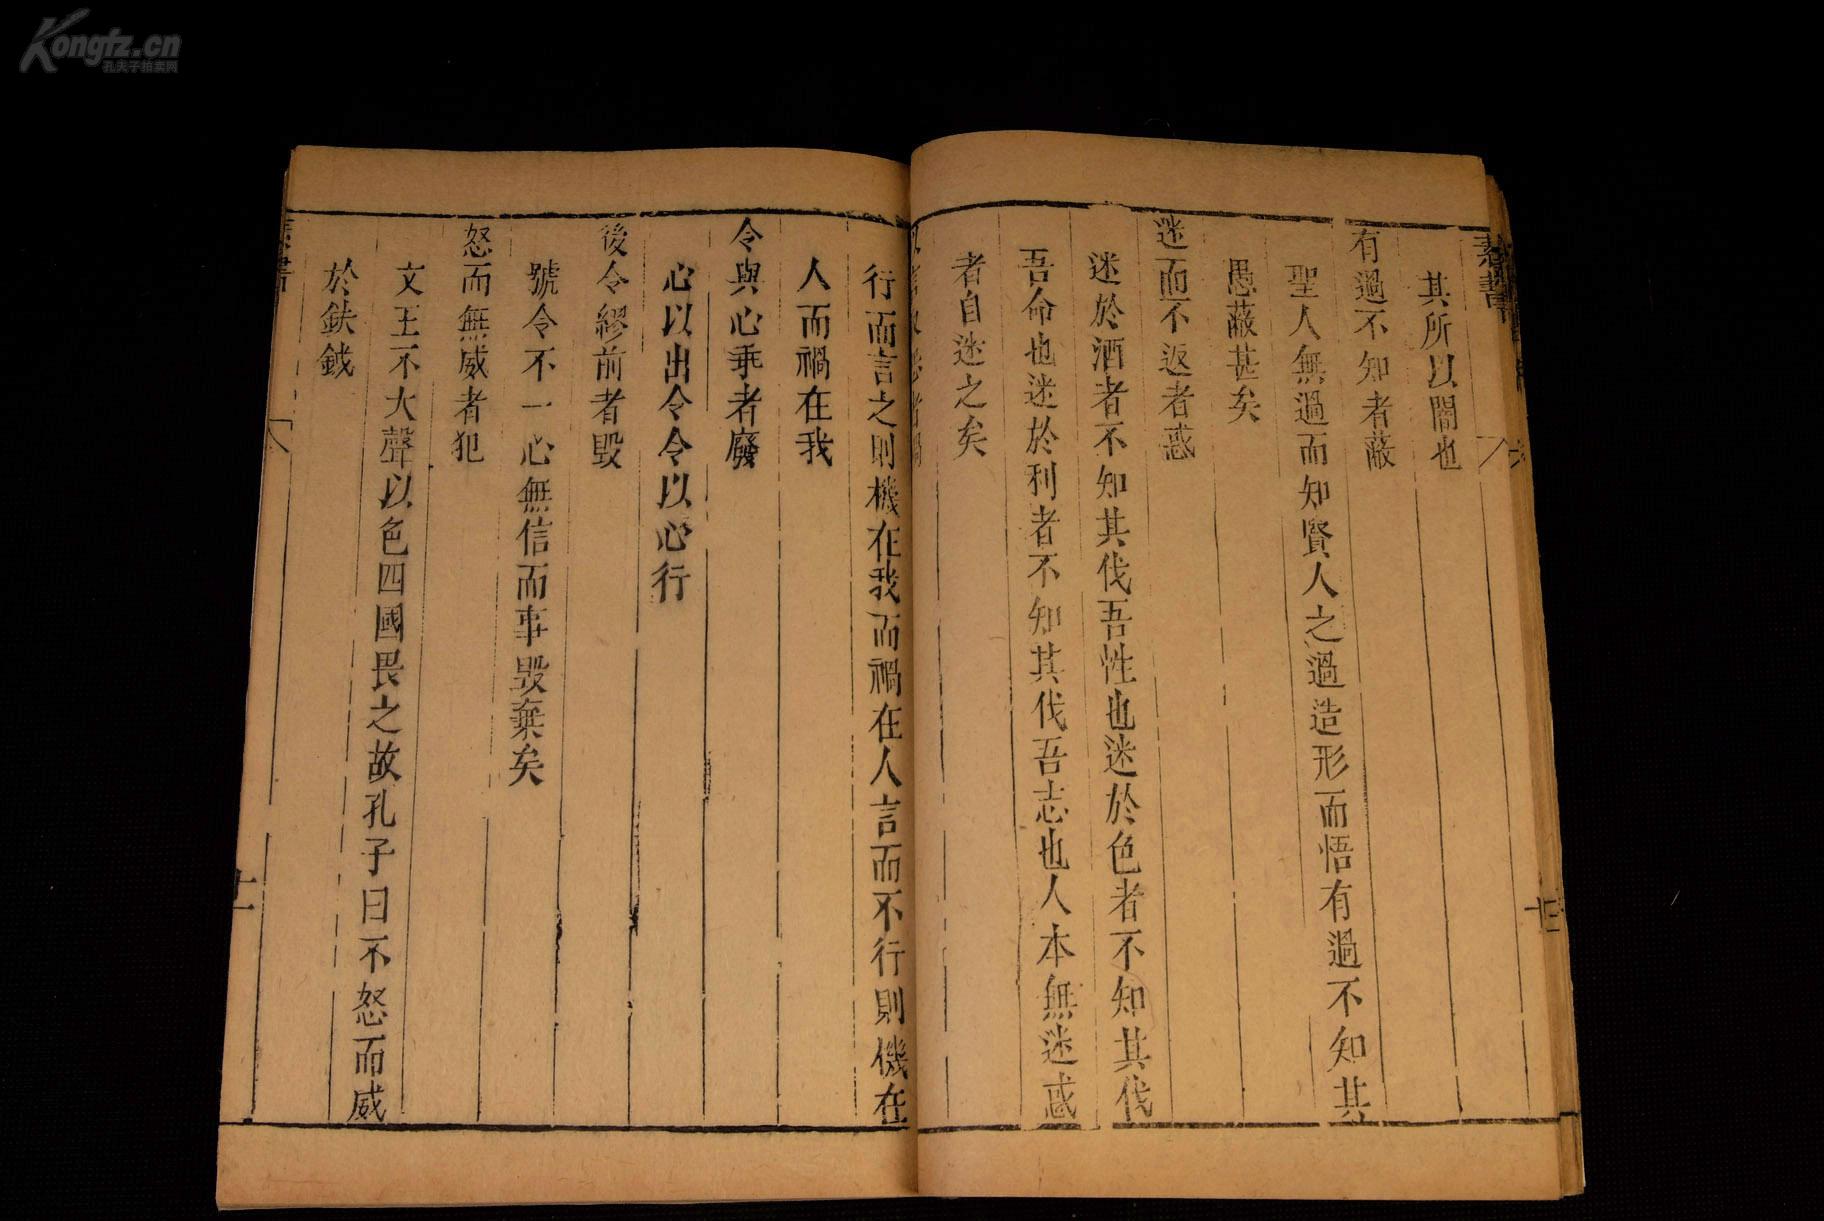 Kongfz.cn
孔夫子拍卖网
素書
其所以闇也
有過不知者蔽
聖人無過而知賢人之過造形而悟有過不知其
愚蔽甚矣
迷而不返者惑
迷於酒者不知其伐吾性也迷於色者不知其伐
吾命也迷於利者不知其伐吾志也人本無迷惑
者自迷之矣
行而言之則機在我而禍在人言而不行則機在
人而禍在我
令與心乖者廢
心以出令令以心行
後令繆前者毀
號令不一心無信而事毀棄矣
怒而無威者犯
文王不大聲以色四國畏之故孔子曰不怒而威
於鈇鉞